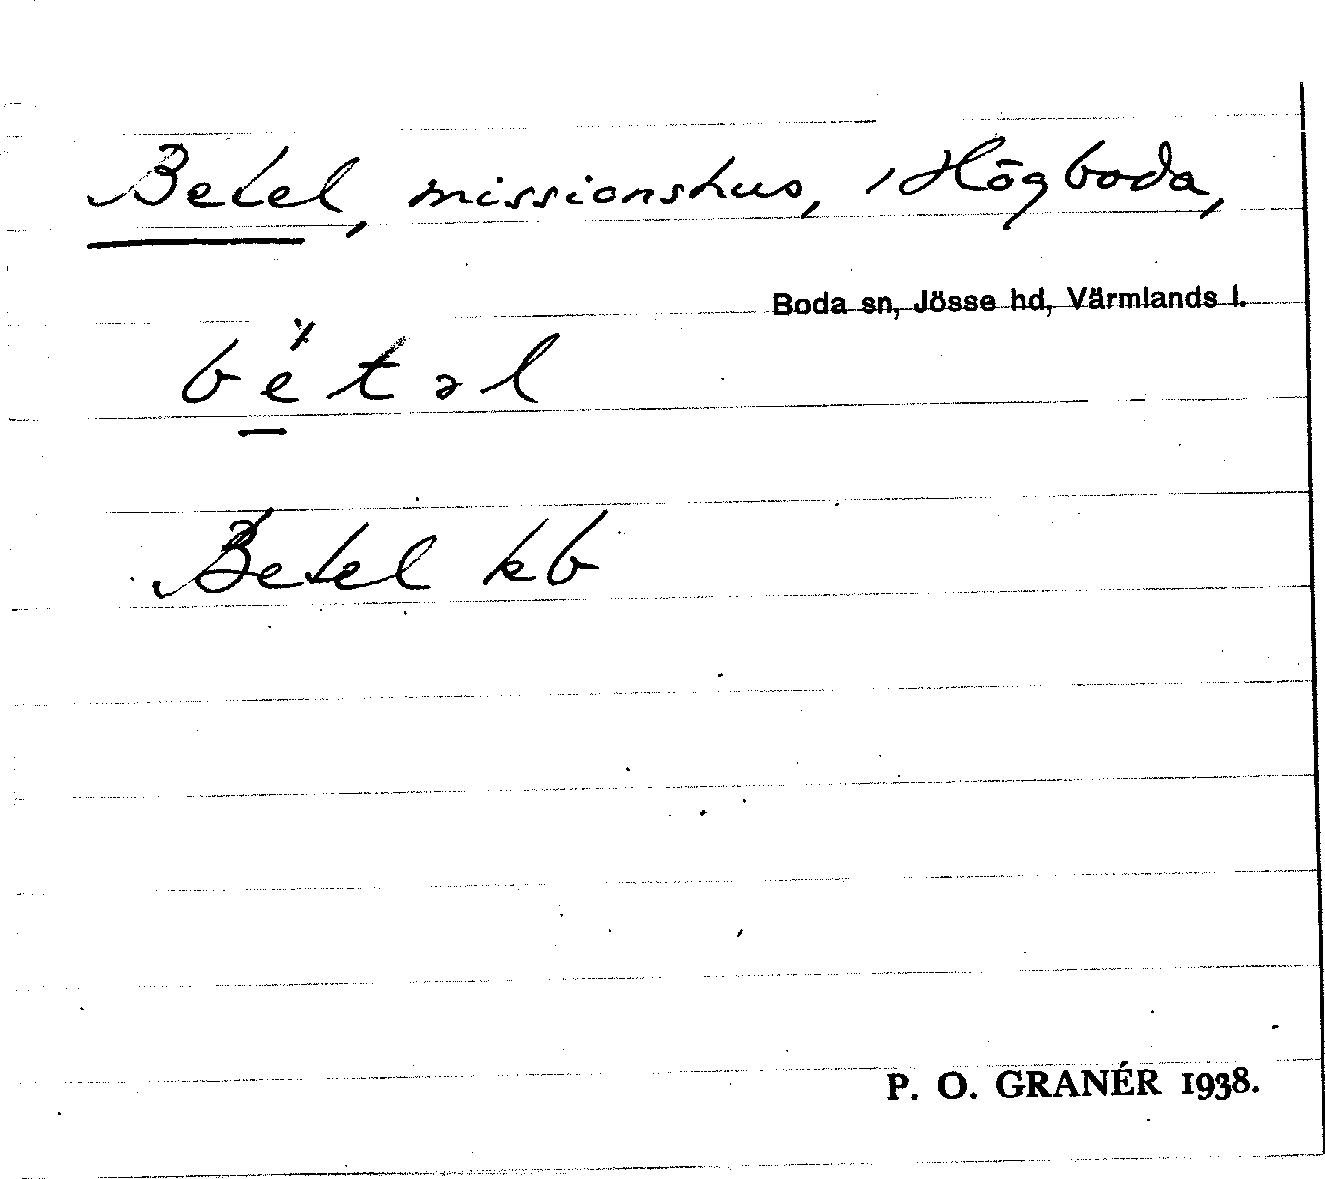 Betel, missionshus, i Högboda,
Boda sn, Jösse hd, Värmlands l.
bétəl
Betel kb
P. O. GRANÉR 1938.